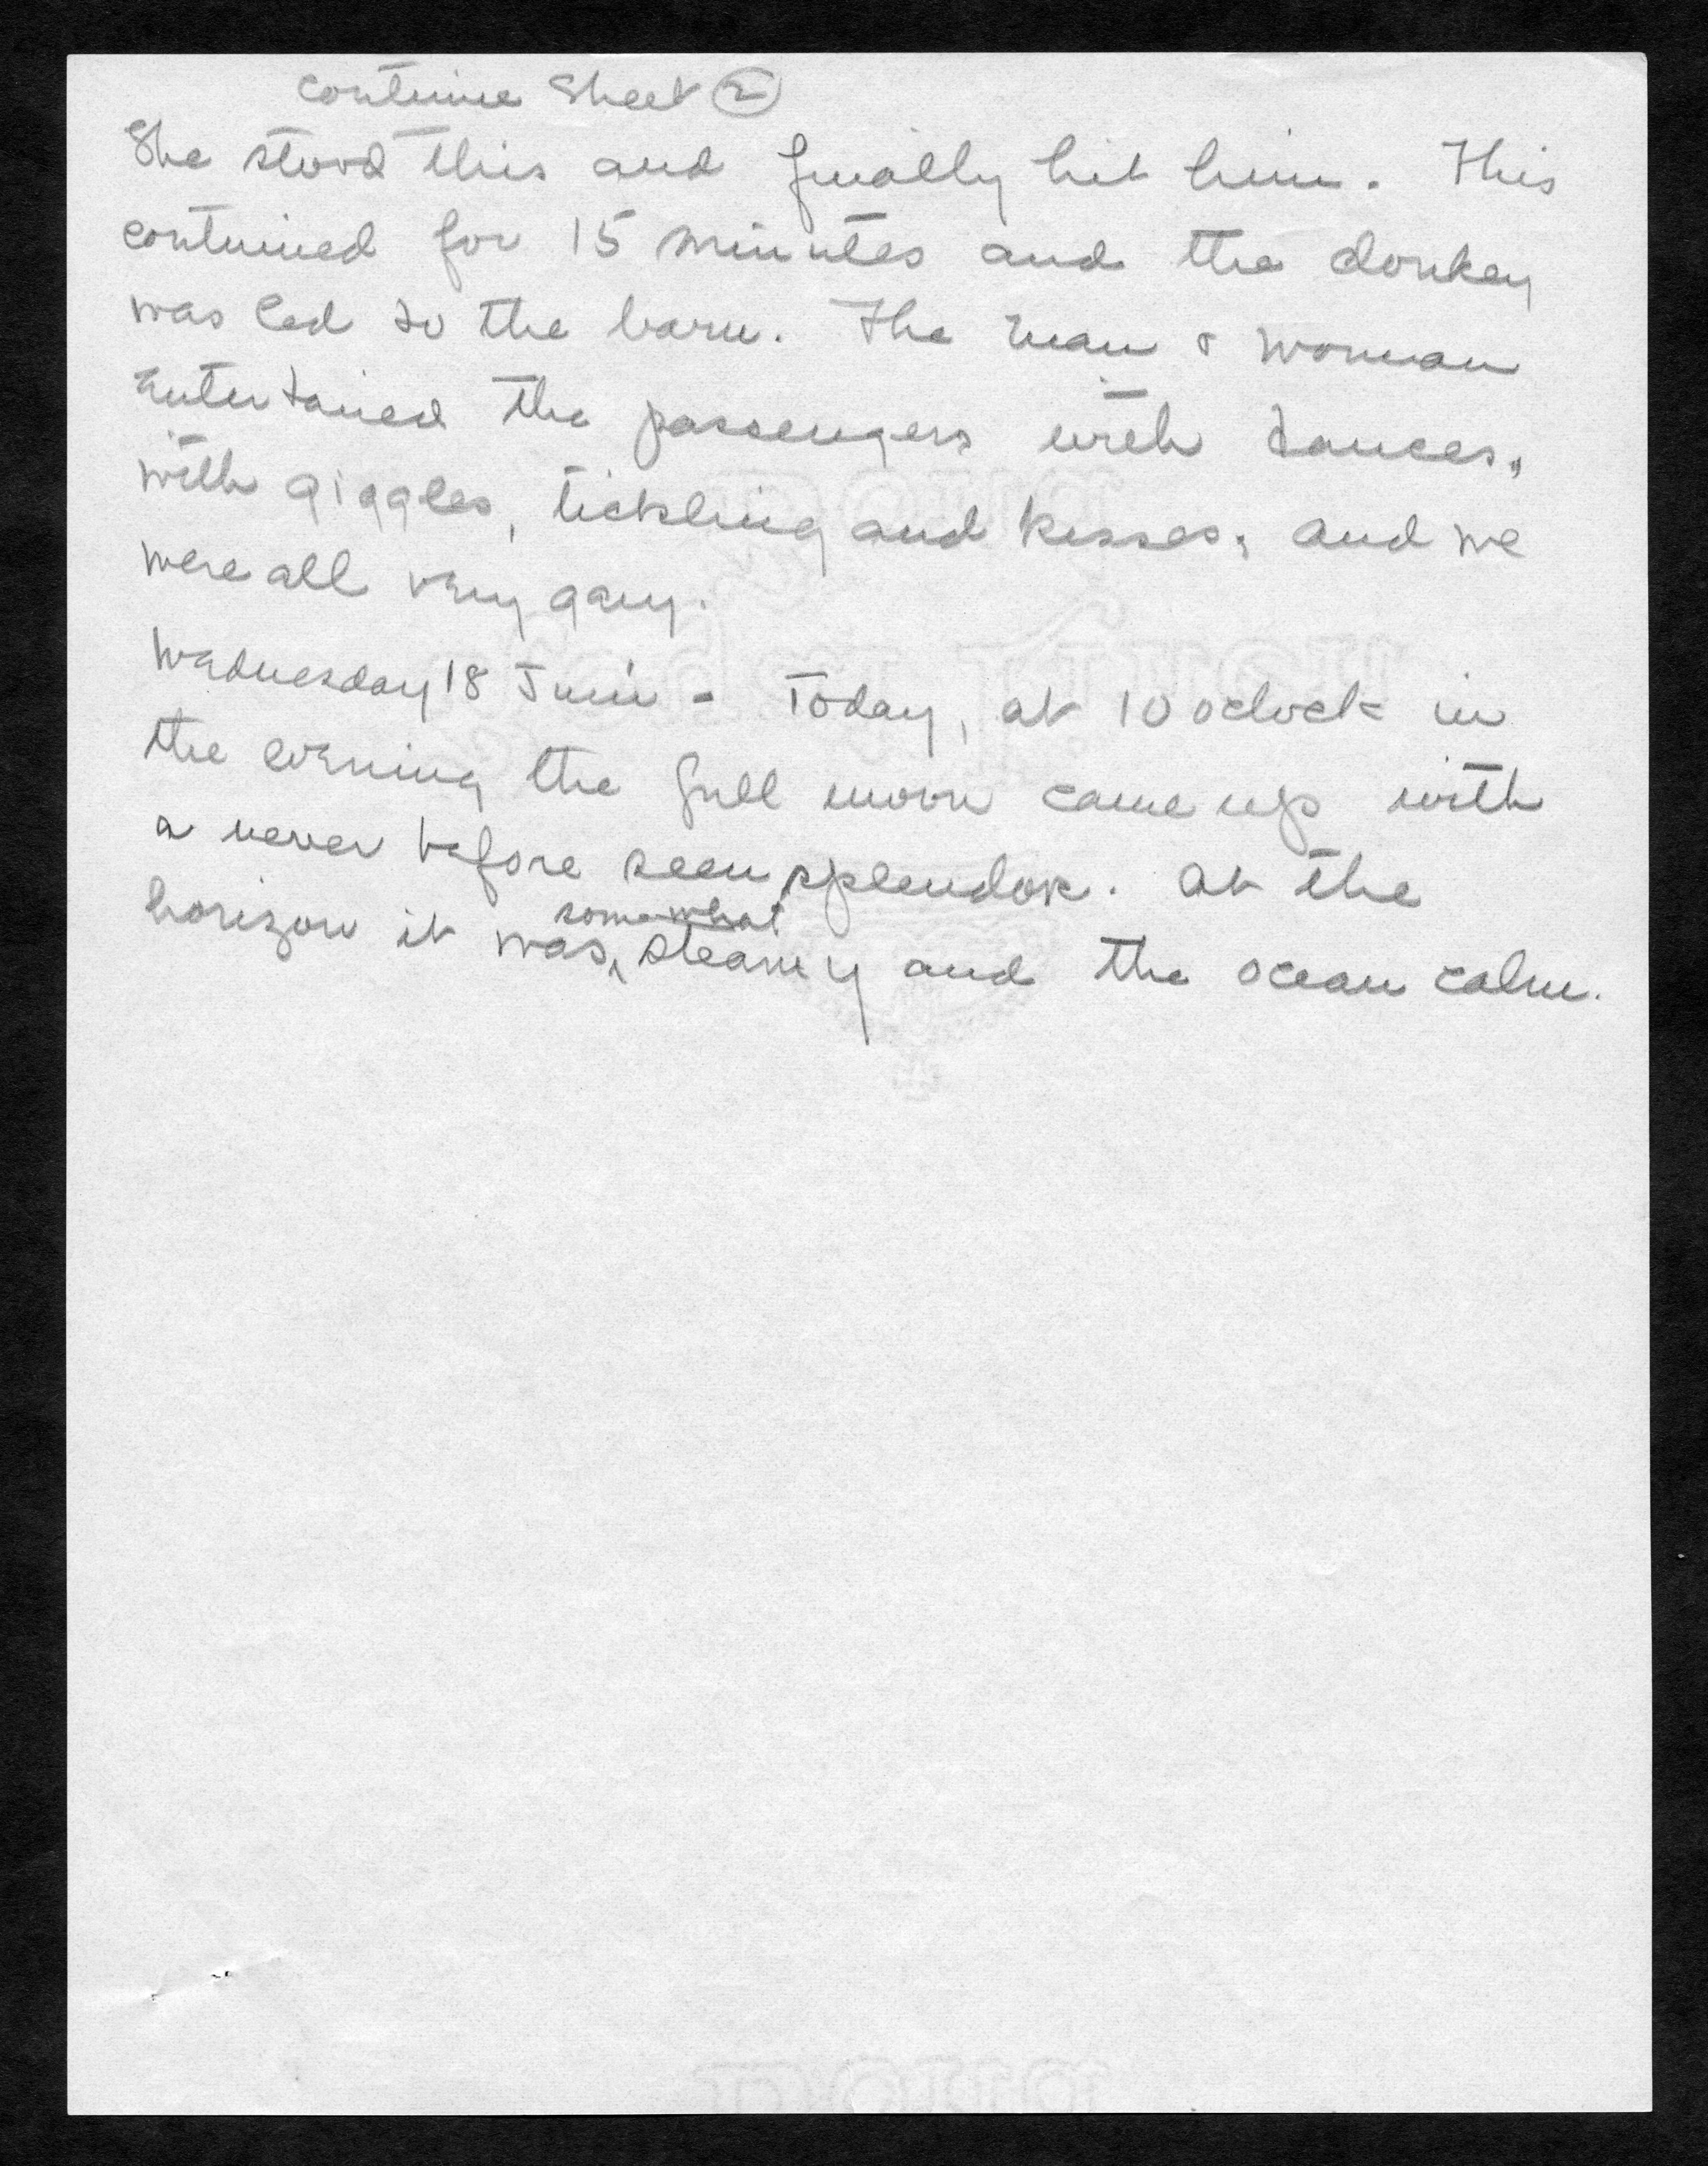 continue Sheet 2
She stood this and finally hit him. This
continued for 15 minutes and the donkey
was led to the barn. The man & woman
entertained the passengers with dances,
with giggles, tickling and kisses, and we
were all very gay.
Wednesday 18 Juni - Today, at 10 oclock in
the evening the full moon came up with
a never before seen splendor. At the
somewhat
horizon it was steamy and the ocean calm.